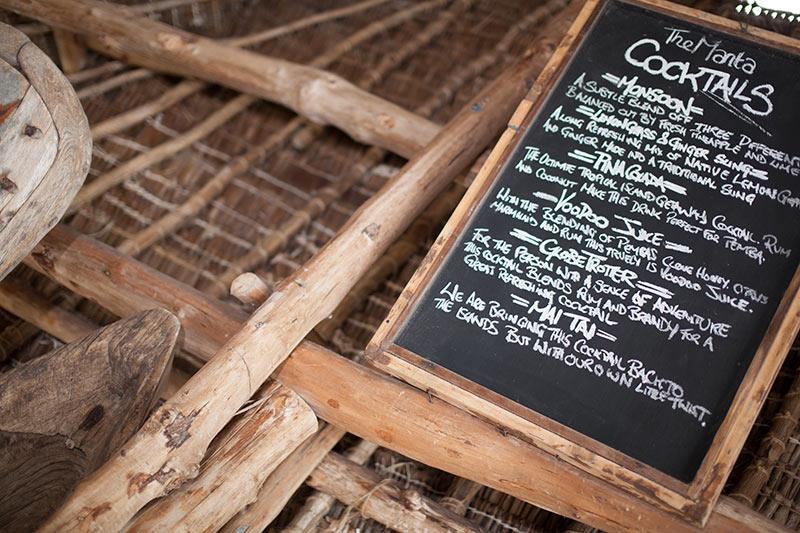 The Manta
Cocktails
=Monsoon=
A Subtle Blend off Three Different
Balanced out by Fresh Pineapple and Lime
=Lemongrass & Ginger Sling=
A long Refreshing mix of Native Lemon Grass
and Ginger Made into a Traditional Sling
=Pina Colada=
The Ultimate Tropical Island Getaway Cocktail. Rum
and Coconut Make this Drink Perfect for Pemba.
=Voodoo Juice=
With the Blending of Pembas Clove Honey,
and Rum this truely is Voodoo Juice.
=Globetroter=
For the Person with a Sence of Adventure
this Cocktail Blends Rum and Brandy for a
Great Refreshing Cocktail
=Mai Tai=
We Are Bringing this Cocktail Back to
the Islands But with our own Little Twist.